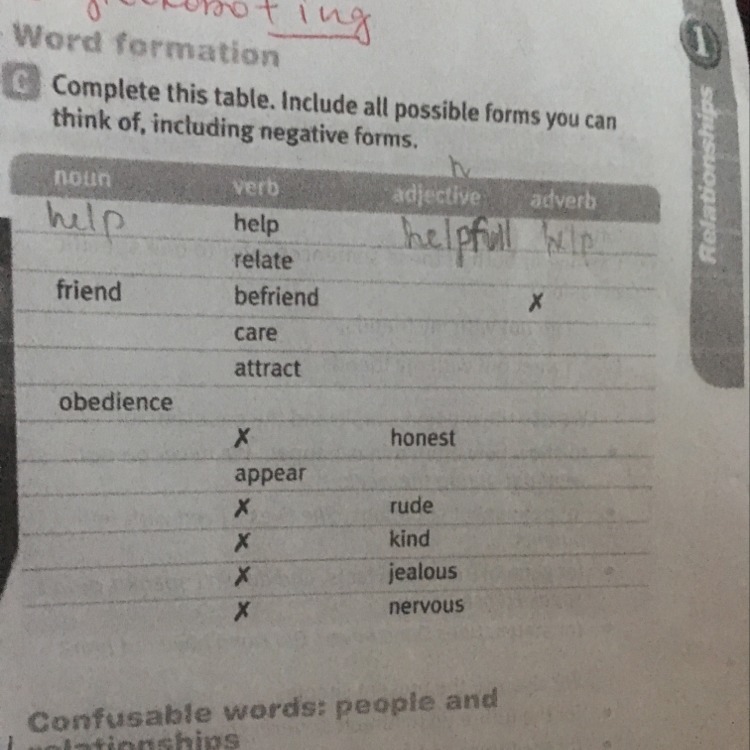 ing
Word formation
C Complete this table. Include all possible forms you can
think of, including negative forms.
noun verb adjective adverb
help help helpfull help
relate
friend befriend ✗
care
attract
obedience
✗ honest
appear
✗ rude
✗ kind
✗ jealous
✗ nervous
Confusable words: people and
relationships
1
Relationships